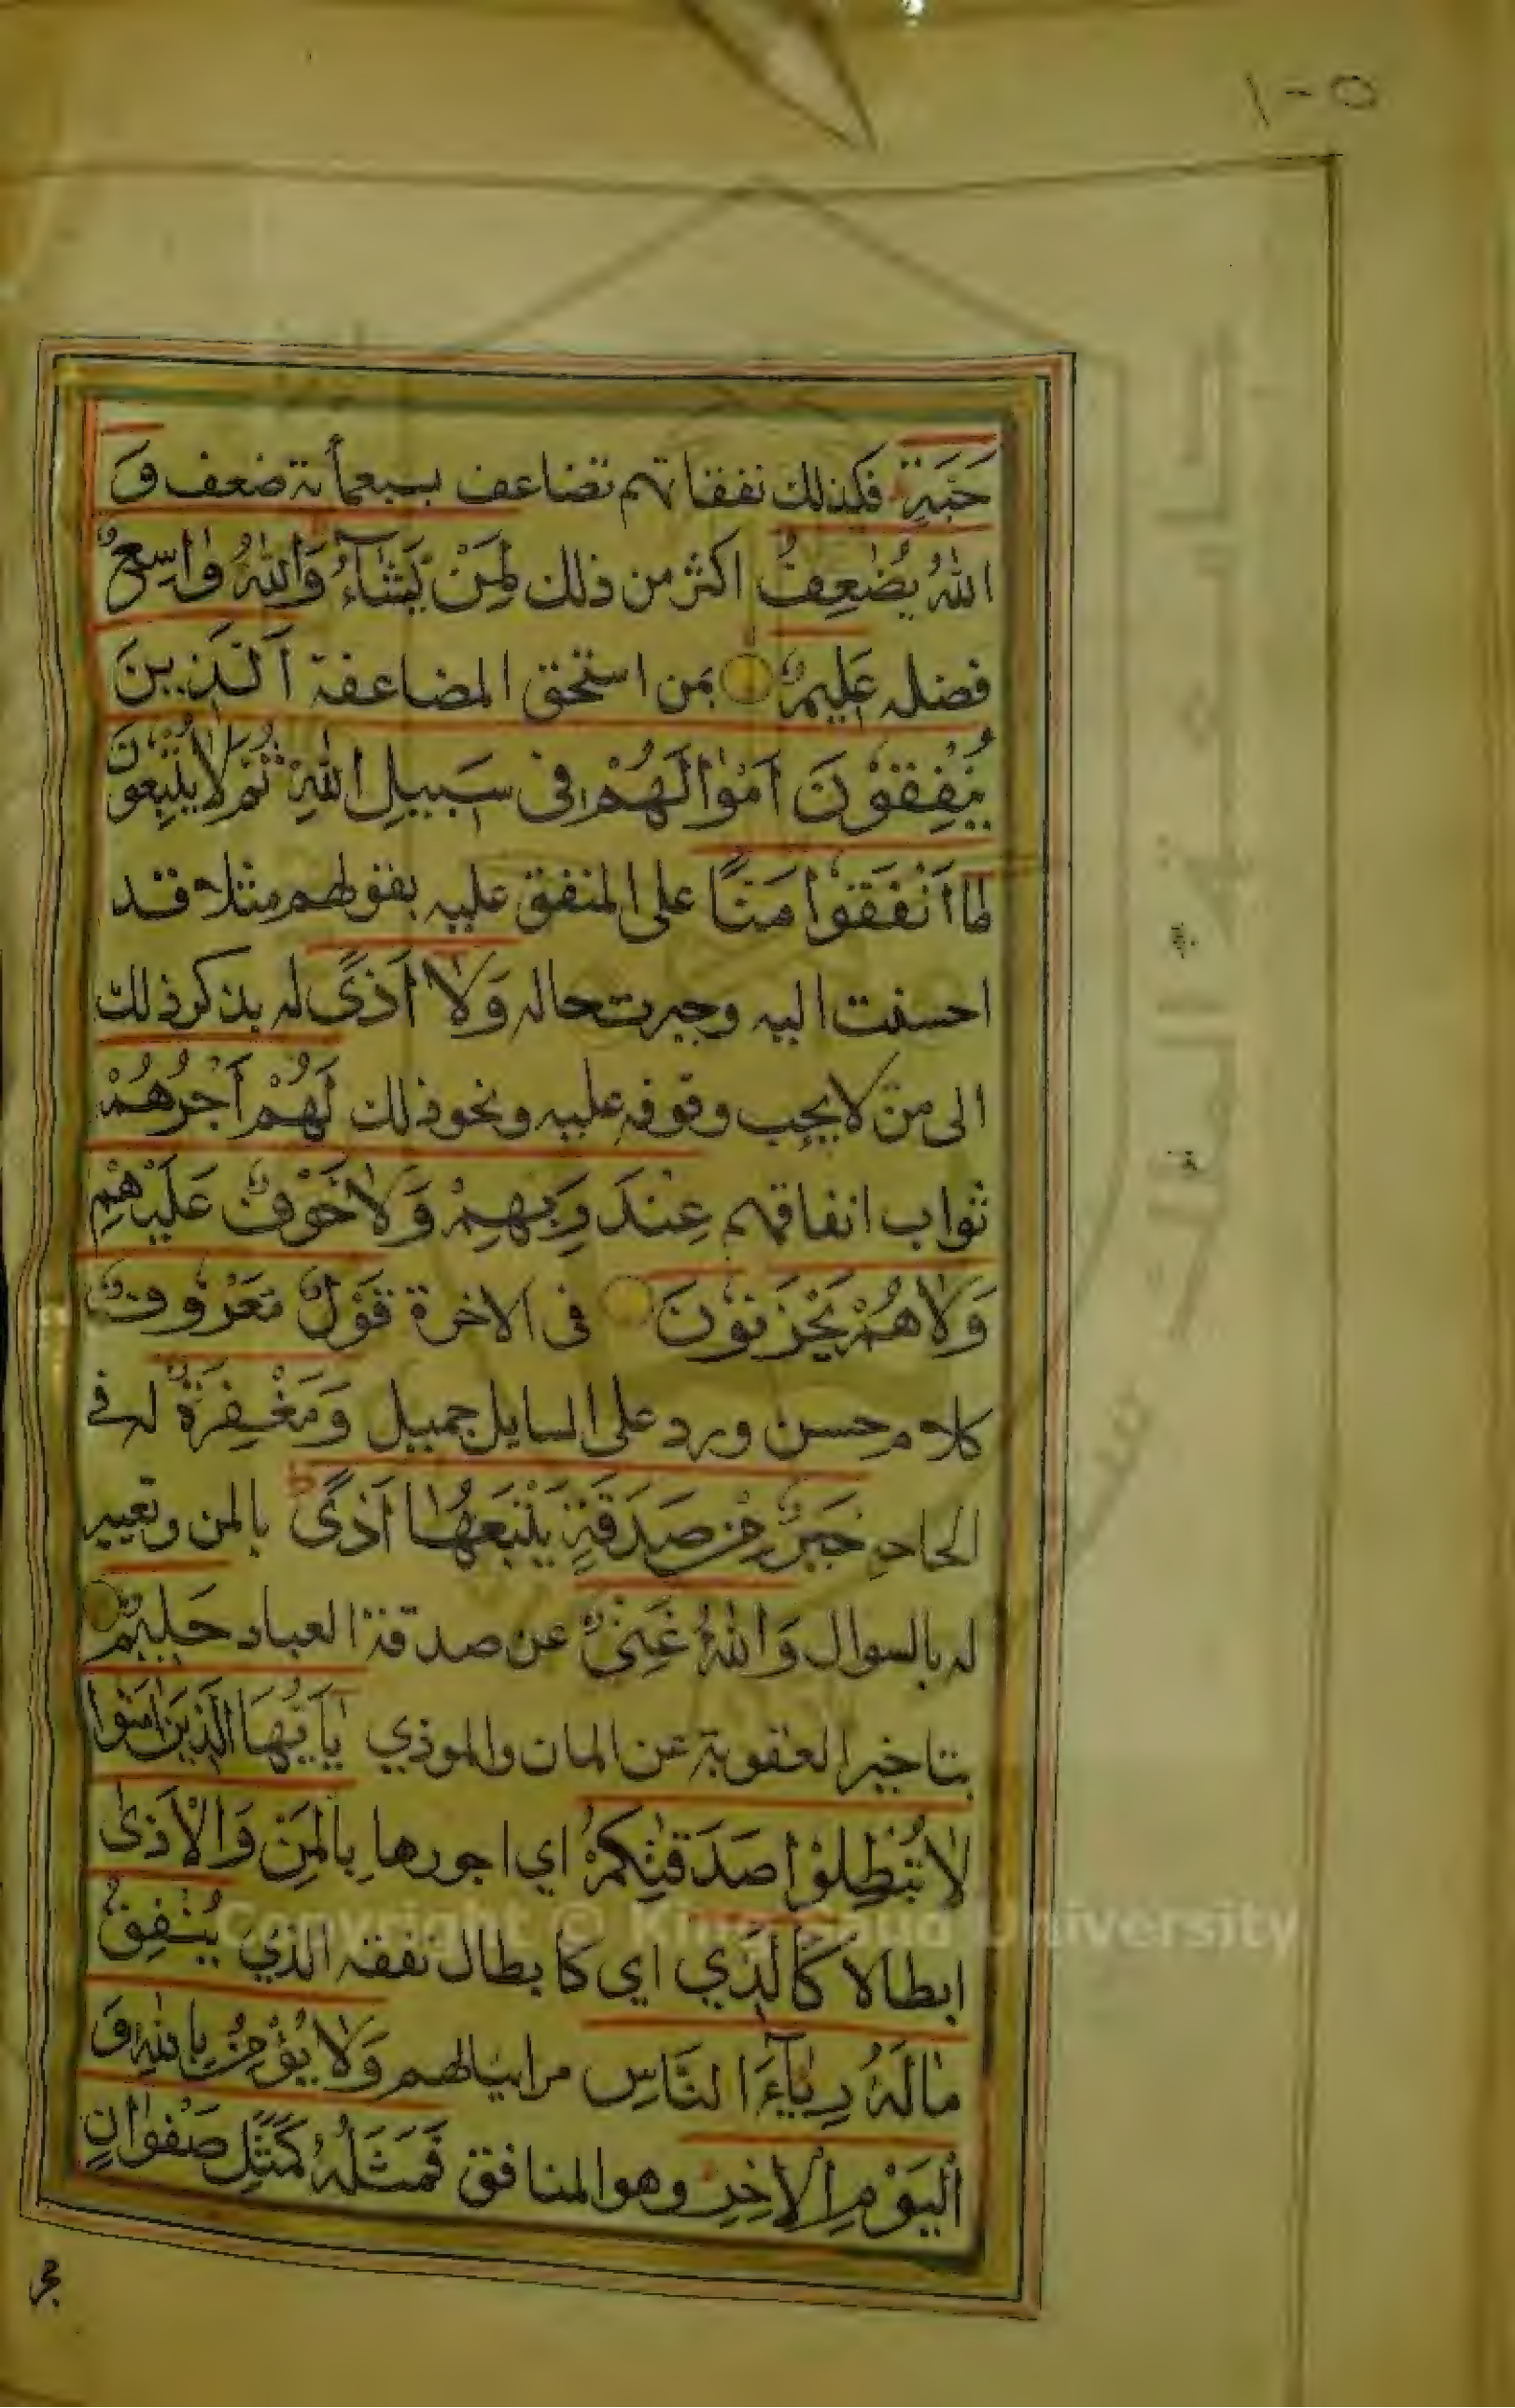 ١٠٥
حَبَّةٍ فكذلك نفقاتهم تضاعف بسبعمأىة ضعف وَ
اللهُ يُضٰعِفُ اكثر من ذلك لِمَنْ يَشَآءُ وَاللهُ وَاسِعٌ
فضله عَلِيمٌ بمن استحق المضاعفة اَلَّذِينَ
يُنْفِقُونَ اَمْوَالَهُمْ فِى سَبِيلِ اللهِ ثُمَّ لَا يُتْبِعُونَ
مَا اَنْفَقُوا مَنًّا على المنفق عليه بقولهم مثلا قد
احسنت اليه وجبرت حاله وَلَا اَذًى له بذكر ذلك
الى من لا يجب وقوفه عليه ونحو ذلك لَهُمْ اَجْرُهُمْ
ثواب انفاقهم عِنْدَ رَبِّهِمْ وَلَا خَوْفٌ عَلَيْهِمْ
وَلَا هُمْ يَحْزَنُونَ فى الاخرة قَوْلٌ مَعْرُوفٌ
كلام حسن ورد على السايل جميل وَمَغْفِرَةٌ له فى
الحاحه خَيْرٌ مِنْ صَدَقَةٍ يَتْبَعُهَا اَذًى ط بالمن وتعيير
له بالسوال وَاللهُ غَنِىٌّ عن صدقة العباد حَلِيمٌ
بتاخير العقوبة عن المان والموذي يٰاَيُّهَا الَّذِينَ اٰمَنُوا
لَا تُبْطِلُوا صَدَقٰتِكُمْ اي اجورها بِالْمَنِّ وَالْاَذٰى
ابطالا كَالَّذِي اي كابطال نفقه الذي يُنْفِقُ
مَالَهُ رِيَآءَ النَّاسِ مراىيا لهم وَلَا يُؤْمِنُ بِاللهِ وَ
الْيَوْمِ الْاٰخِرِ وهو المنافق فَمَثَلُهُ كَمَثَلِ صَفْوَانٍ
Copyright © King Saud University